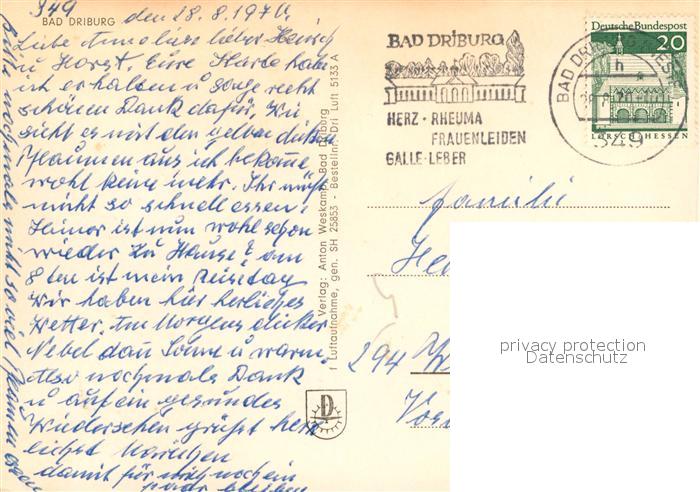 349
BAD DRIBURG den 28.8.1970.
Liebe Anneliese lieber Heinz
u Horst. Eure Karte habe
ich erhalten u sage recht
schönen Dank dafür. Wie
sieht es mit den gelben dicken
Pflaumen aus ich bekomme
wohl keine mehr. Ihr müßt
nicht so schnell essen.
ist nun wohl schon
wieder zu Hause? am
8ten ist mein Reisetag
Wir haben hier herrliches
Wetter. Am Morgens dicker
Nebel dan Sonne u warm.
Also nochmals Dank
u auf ein gesundes
Wiedersehen grüßt herz
lichst
damit für mich noch ein
paar bleiben
Bitte nochmals nicht so viel Pflaumen essen
Verlag: Anton Weskamp, Bad Driburg
f Luftaufnahme, gen. SH 25853 Bestellnr. Dri Luft 5133 A
D
BAD DRIBURG
HERZ · RHEUMA
FRAUENLEIDEN
GALLE · LEBER
Deutsche Bundespost
20
LORSCH/HESSEN
BAD DRIBURG
h
349
Familie
He
294
privacy protection
Datenschutz